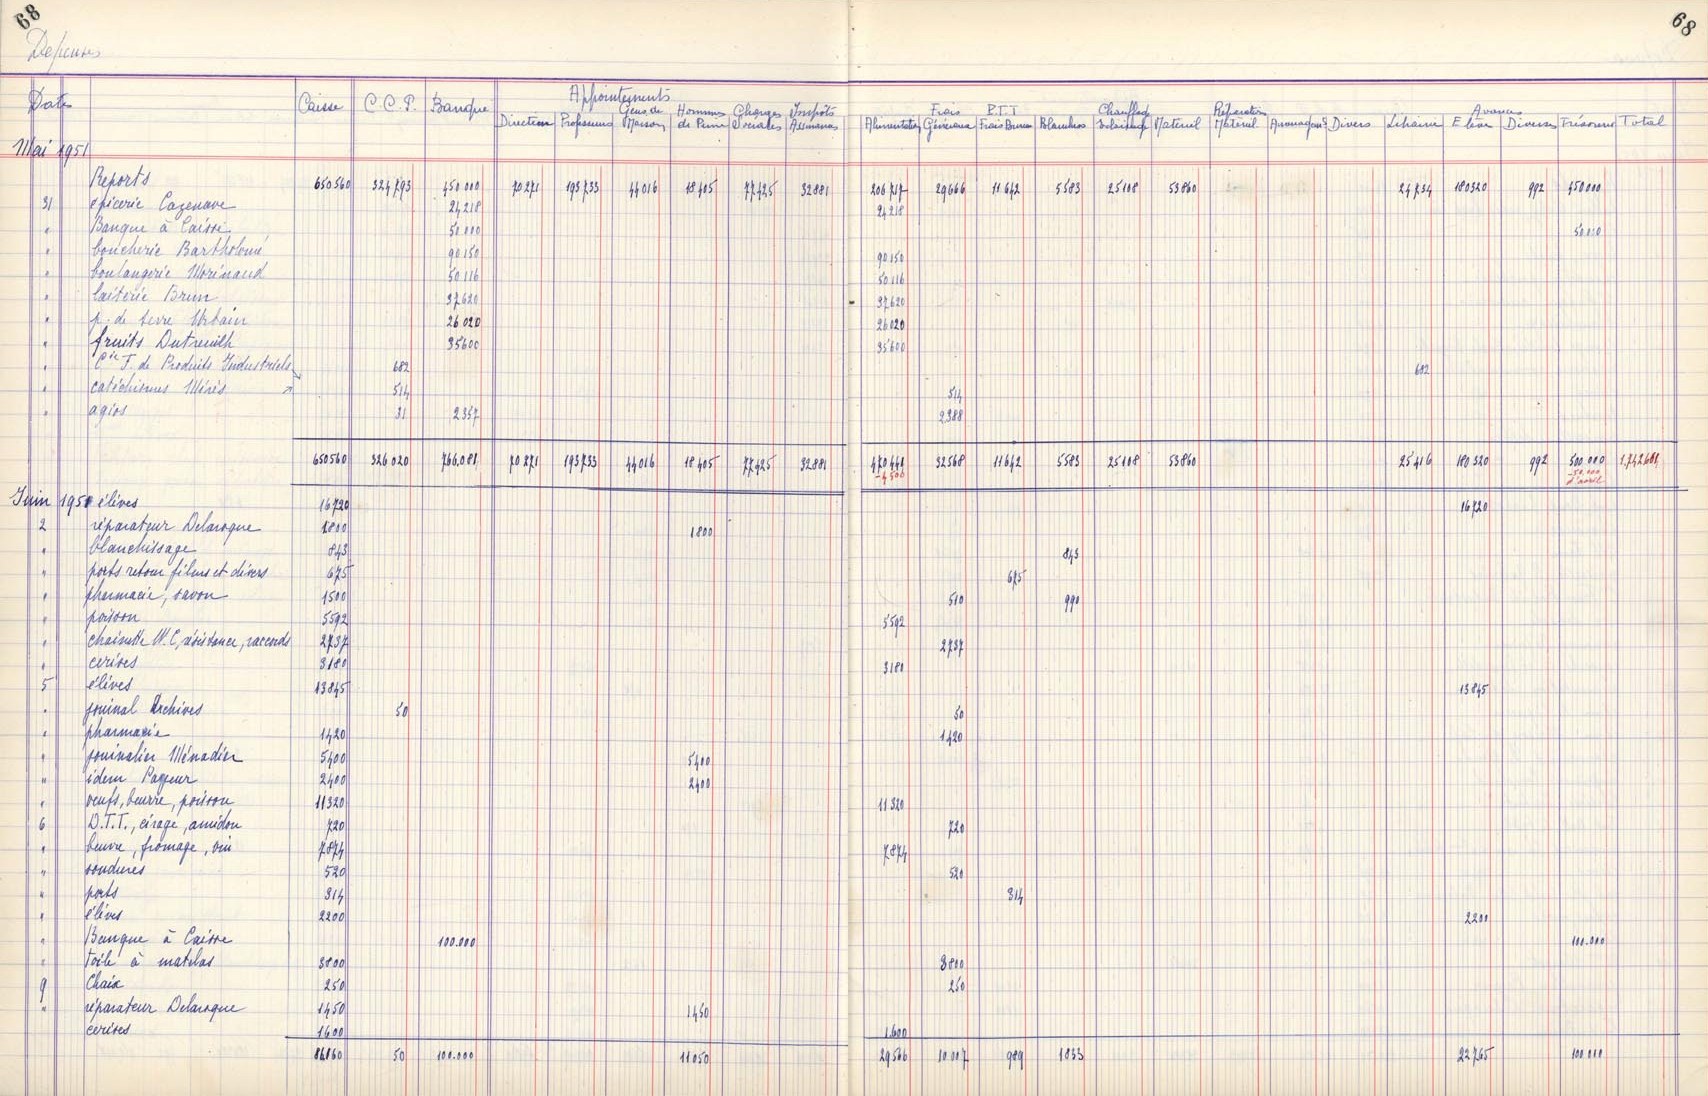 68 68
Dépenses
Appointements Avances
Date Caisse C.C.P. Banque Direction Professeurs Gens de Maison Hommes de Peine Charges Sociales Impôts Assurances Alimentation Frais Généraux P.T.T Frais Bureau Chauffage Eclairage Matériel Réparation Matériel Divers Librairie Elèves Diverses Trésorerie Total
Mai 1951
Reports 650560 324793 450.000 70271 193733 44016 18405 77425 32881 206717 29666 11642 5583 25108 53860 24734 180320 992 450000
31 épicerie Cazenave 24218 24218
" Banque à Caisse 50.000 50.000
" boucherie Bartholomé 90150 90150
" boulangerie Morénaud 50116 50116
" laiterie Brun 37620 37620
" p. de terre Urbain 26020 26020
" fruits Dutreuilh 35600 35600
" Cie F. de Produits Industriels 682 682
" catéchismes Mérés 514 514
" agios 31 2357 2388
650560 326020 766.081 70271 193733 44016 18405 77425 32881 470441 32568 11642 5583 25108 53860 25416 180320 992 500.000 1.742.681
-4500 -50.000
d'avril
Juin 1951 élèves 16720 16720
2 réparateur Delaroque 1800 1800
" blanchissage 843 843
" ports retour films et divers 675 675
" pharmacie, savon 1500 510 990
" poisson 5592 5592
" chainette W.C, résistance, raccords 2737 2737
" cerises 3180 3180
5 élèves 13845 13845
" journal Archives 50 50
" pharmacie 1420 1420
" journalier Ménadier 5400 5400
" idem Pageur 2400 2400
" oeufs, beurre, poisson 11320 11320
6 D.T.T., cirage, amidon 720 720
" beurre, fromage, vin 7874 7874
" soudures 520 520
" ports 314 314
" élèves 2200 2200
" Banque à Caisse 100.000 100.000
" toile à matelas 3800 3800
9 Chaix 250 250
" réparateur Delaroque 1450 1450
cerises 1600 1600
86160 50 100.000 11050 29566 10.007 989 1833 32765 100.000